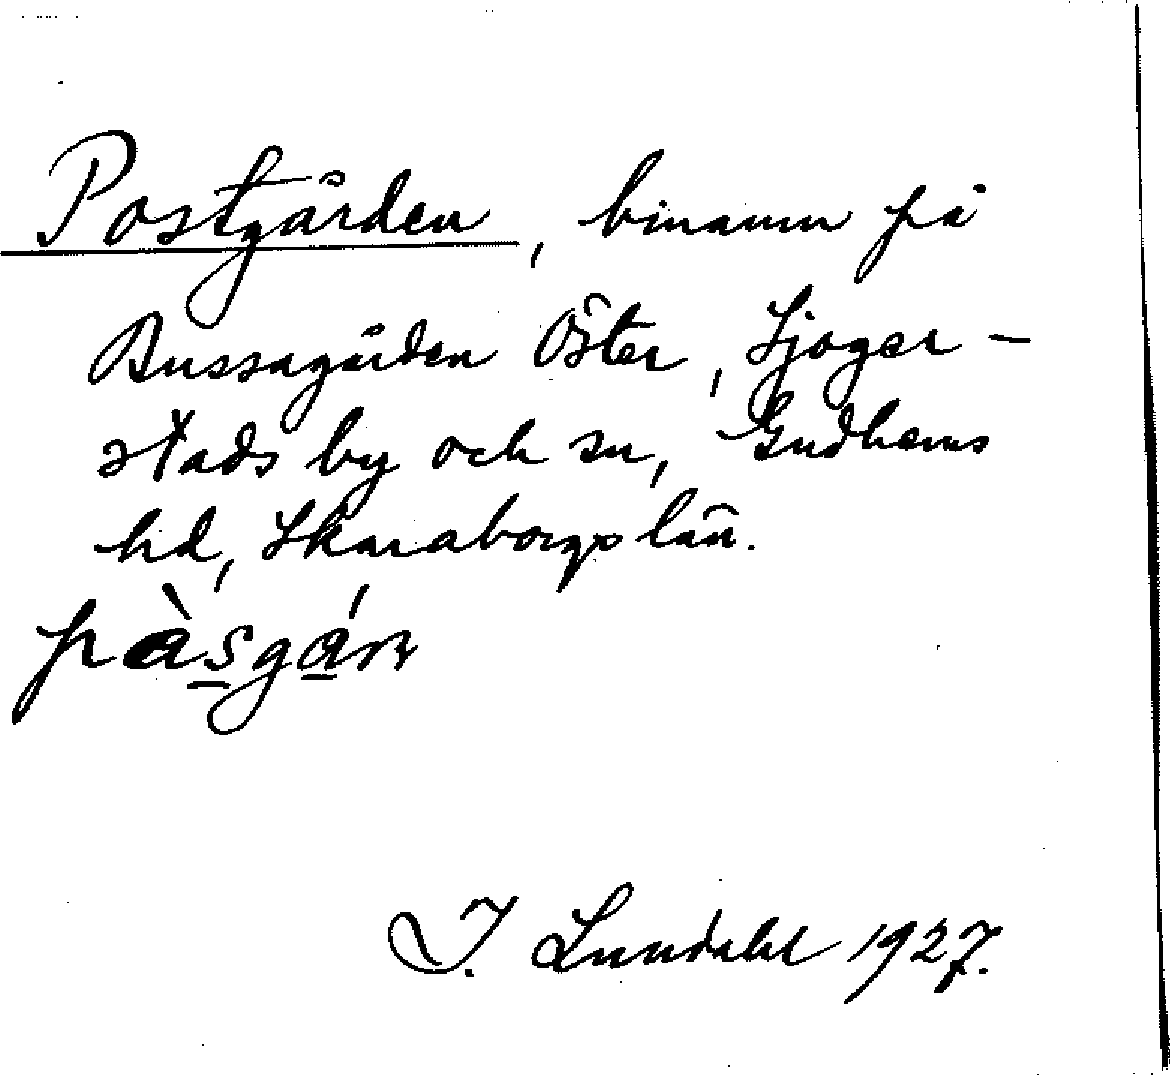 Postgården, binamn på
Bussagården Öster, Sjoger-
stads by och sn, Gudhems
hd, Skaraborgs län.
I. Lundahl 1927.